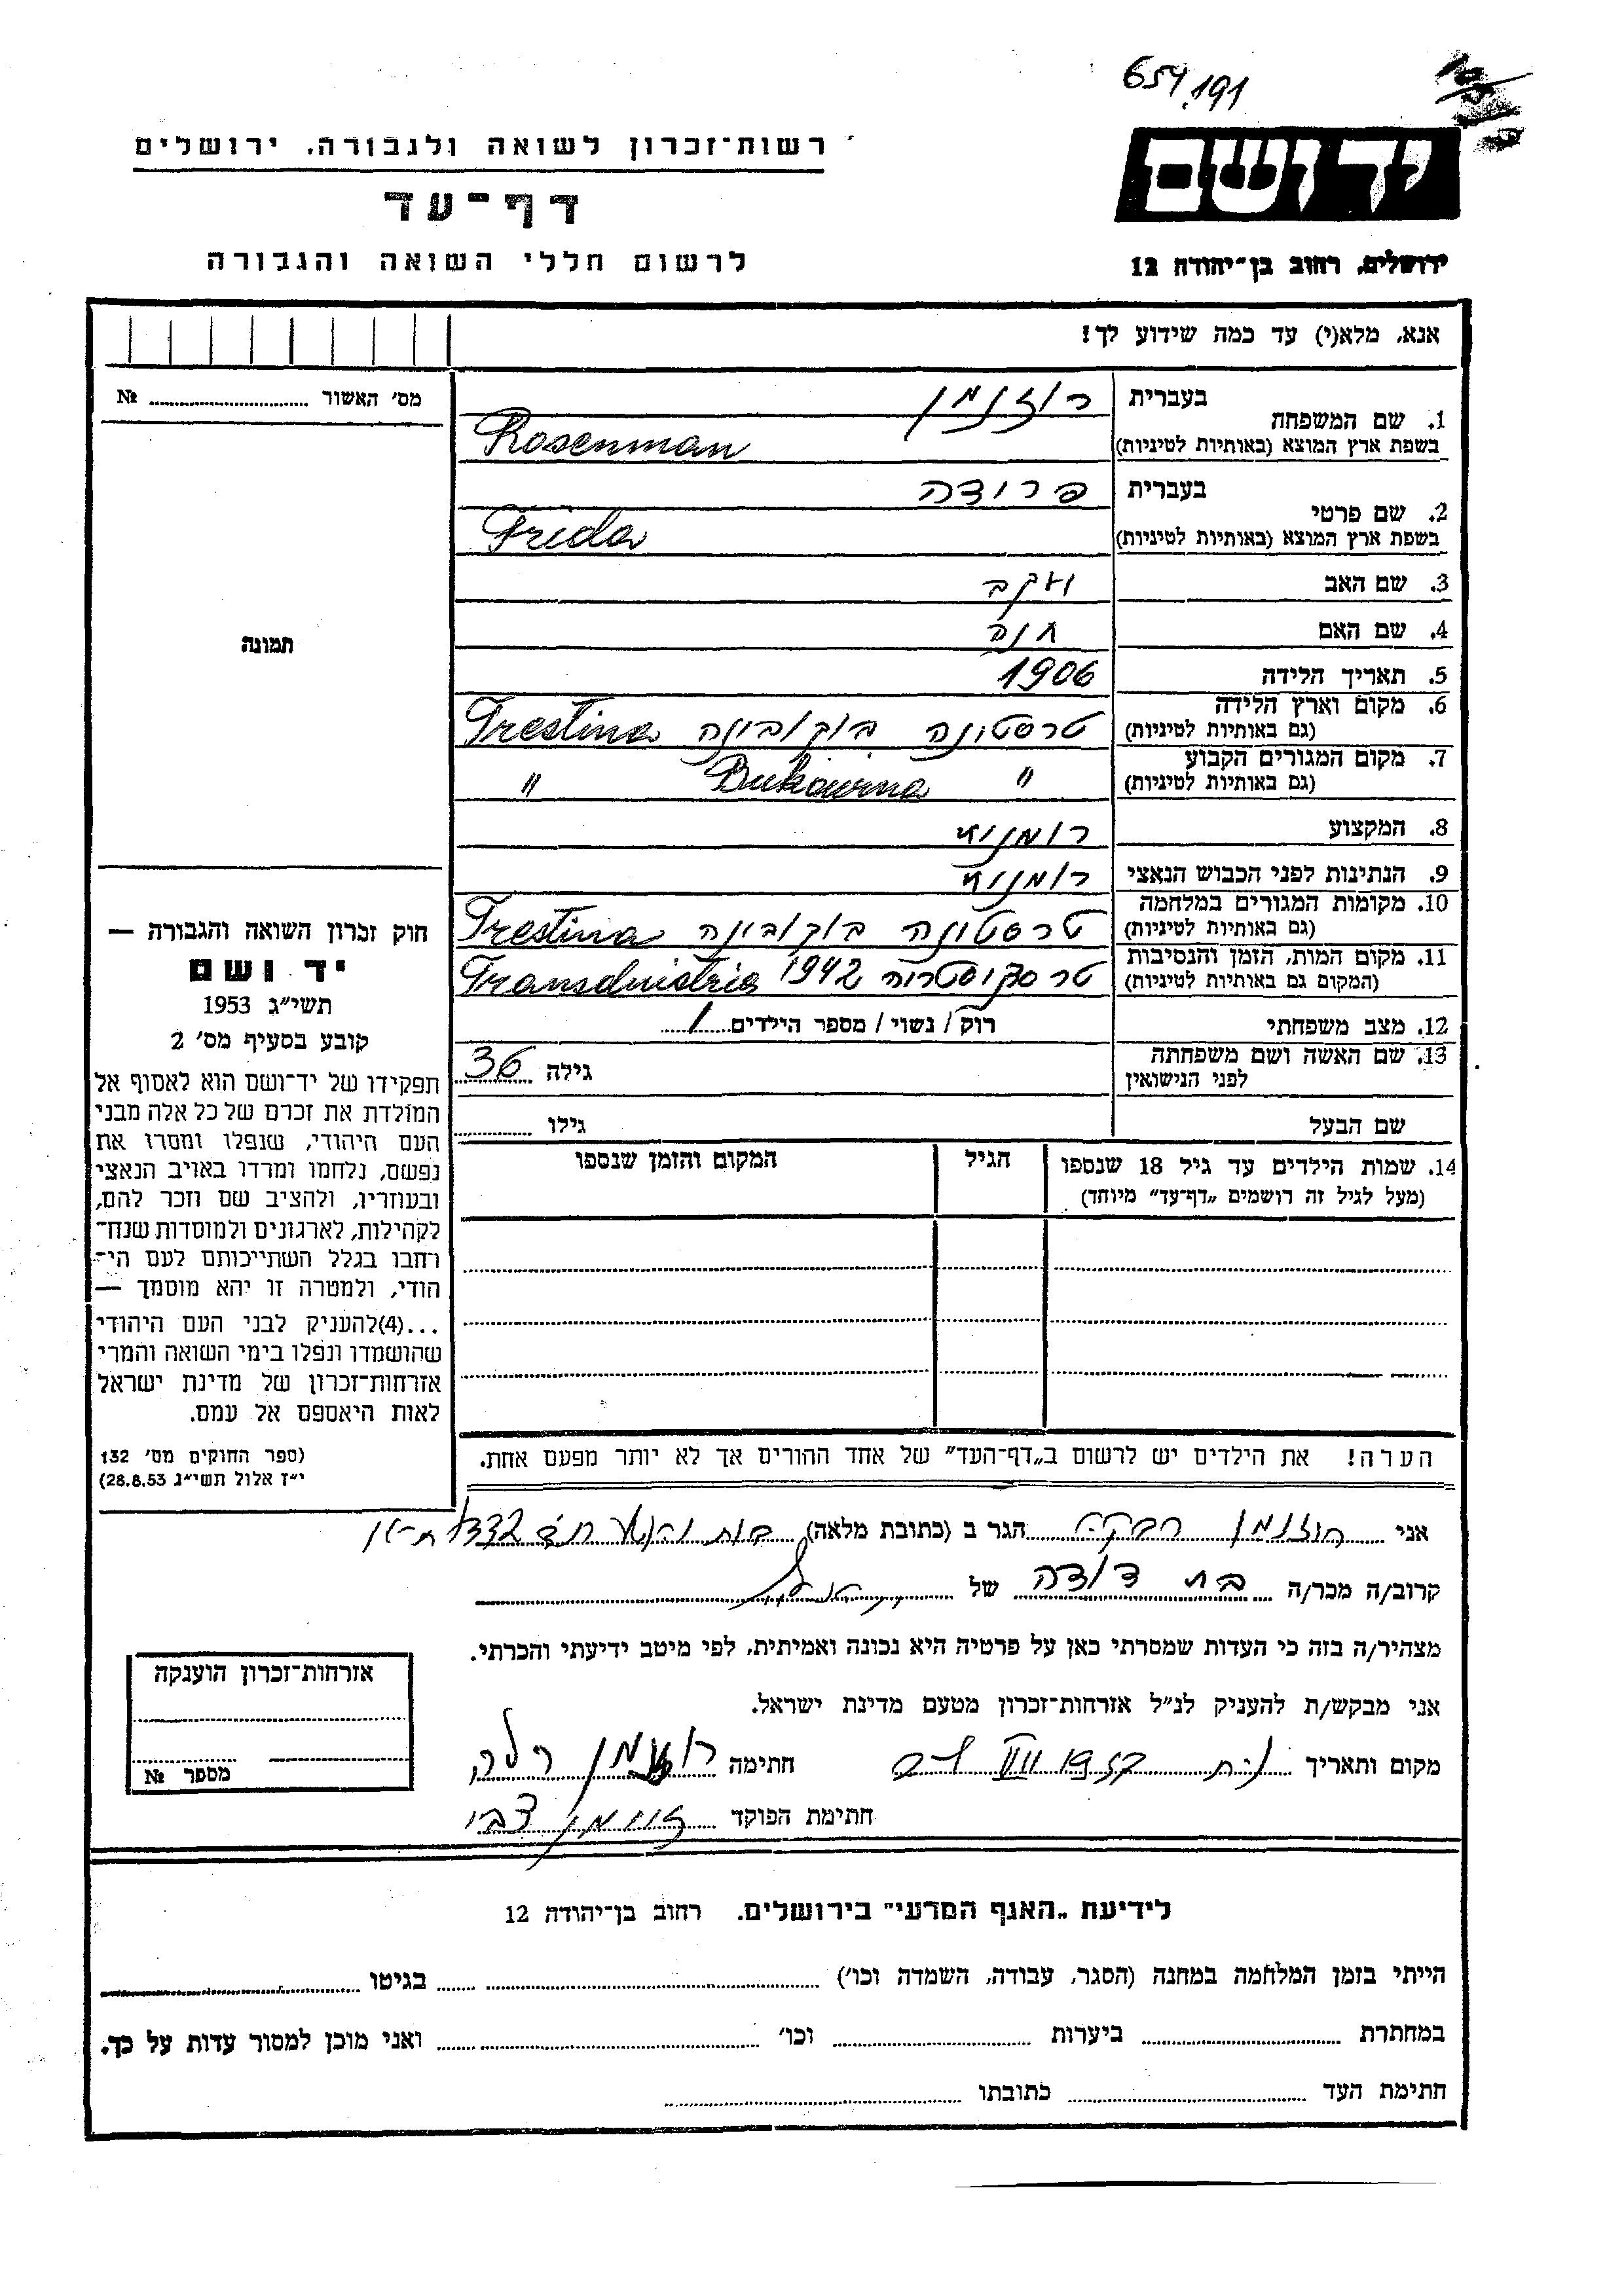 654.191
רשות־זכרון לשואה ולגבורה, ירושלים
יד ושם
דף־עד
לרשום חללי השואה והגבורה
ירושלים, רחוב בן־יהודה 12
אנא, מלא(י) עד כמה שידוע לך!
מס׳ האשור № 
1. שם המשפחה בעברית רוזנמן
בשפת ארץ המוצא (באותיות לטיניות) Rosenman
2. שם פרטי בעברית פרידה
בשפת ארץ המוצא (באותיות לטיניות) Frida
3. שם האב יעקב
4. שם האם חנה
תמונה
5. תאריך הלידה 1906
6. מקום וארץ הלידה (גם באותיות לטיניות) טרסטינה בוקובינה Trestina
7. מקום המגורים הקבוע (גם באותיות לטיניות) " Bukowina "
8. המקצוע
9. הנתינות לפני הכבוש הנאצי
10. מקומות המגורים במלחמה (גם באותיות לטיניות) טרסטינה בוקובינה Trestina
11. מקום המות, הזמן והנסיבות (המקום גם באותיות לטיניות) 1942 Transdnistria
12. מצב משפחתי רוק / נשוי / מספר הילדים 1
13. שם האשה ושם משפחתה לפני הנישואין גילה 36
שם הבעל גילו
14. שמות הילדים עד גיל 18 שנספו הגיל המקום והזמן שנספו
(מעל לגיל זה רושמים „דף־עד" מיוחד)
חוק זכרון השואה והגבורה —
יד ושם
תשי״ג 1953
קובע בסעיף מס׳ 2
תפקידו של יד־ושם הוא לאסוף אל
המולדת את זכרם של כל אלה מבני
העם היהודי, שנפלו ומסרו את
נפשם, נלחמו ומרדו באויב הנאצי
ובעוזריו, ולהציב שם וזכר להם,
לקהילות, לארגונים ולמוסדות שנח־
רחבו בגלל השתייכותם לעם הי־
הודי, ולמטרה זו יהא מוסמך —
...(4)להעניק לבני העם היהודי
שהושמדו ונפלו בימי השואה והמרי
אזרחות־זכרון של מדינת ישראל
לאות היאספם אל עמם.
(ספר החוקים מס׳ 132
י״ז אלול תשי״ג 28.8.53)
הערה! את הילדים יש לרשום ב„דף־העד" של אחד ההורים אך לא יותר מפעם אחת.
אני רוזנמן רבקה הגר ב (כתובת מלאה)
קרוב/ה מכר/ה בת דודה של
מצהיר/ה בזה כי העדות שמסרתי כאן על פרטיה היא נכונה ואמיתית, לפי מיטב ידיעתי והכרתי.
אני מבקש/ת להעניק לנ״ל אזרחות־זכרון מטעם מדינת ישראל.
מקום ותאריך VIII 1957 חתימה
חתימת הפוקד צבי
אזרחות־זכרון הוענקה
מספר №
לידיעת „האגף המדעי" בירושלים, רחוב בן־יהודה 12
הייתי בזמן המלחמה במחנה (הסגר, עבודה, השמדה וכו׳) בגיטו
במחתרת ביערות וכו׳ ואני מוכן למסור עדות על כך.
חתימת העד כתובתו